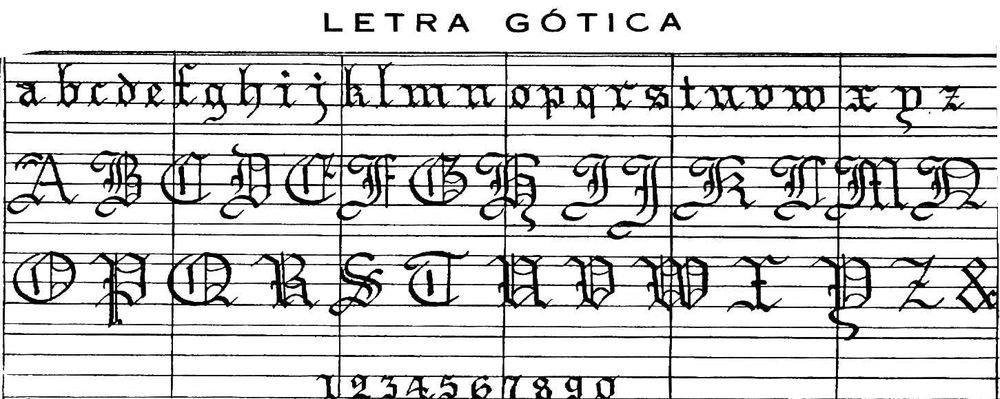 LETRA GÓTICA
a b c d e f g h i j k l m n o p q r s t u v w x y z
A B C D E F G H I J K L M N
O P Q R S T U V W X Y Z &
1 2 3 4 5 6 7 8 9 0